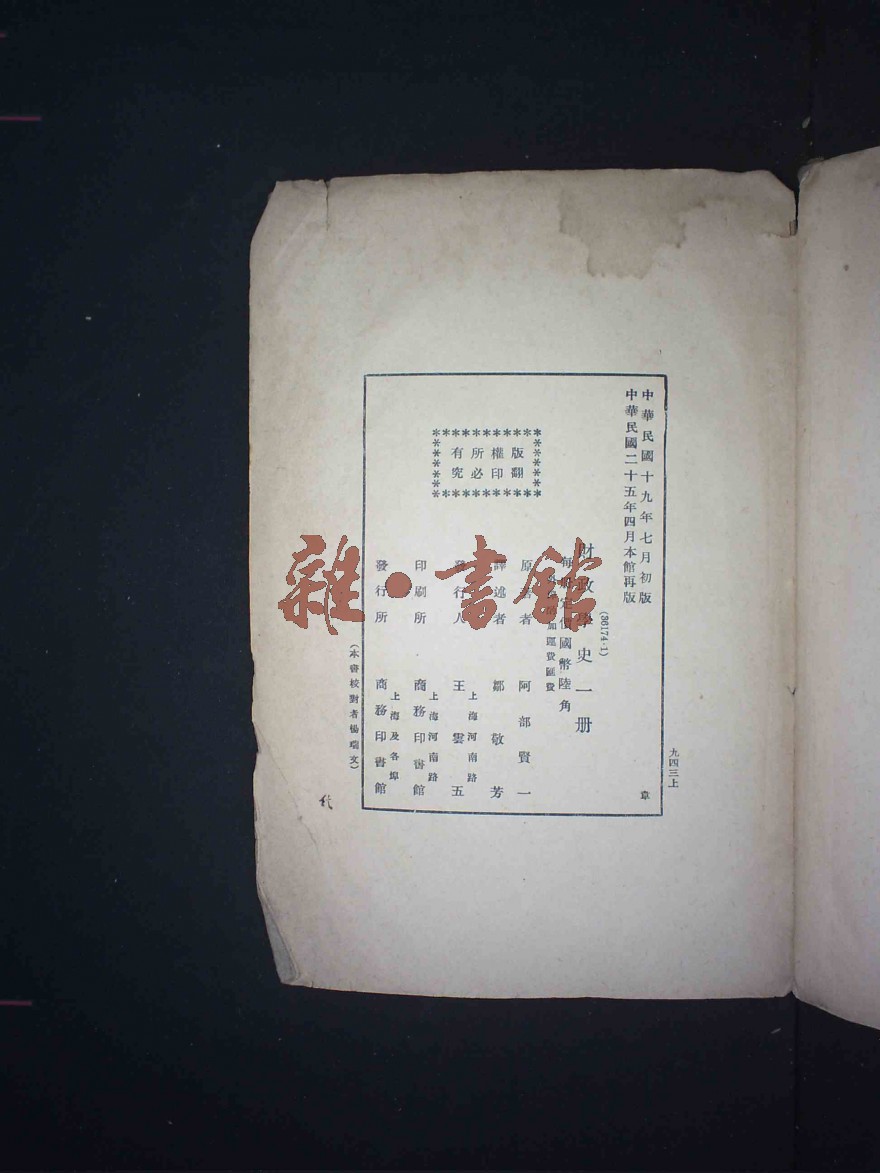 中華民國十九年七月初版
中華民國二十五年四月本館再版
九四三上
章
財政學史一册
(36174·1)
每册定價國幣陸角
加運費匯費
版權所有
翻印必究
原著者 阿部賢一
譯述者 鄒敬芳
發行人 王雲五
上海河南路
印刷所 商務印書館
上海河南路
發行所 商務印書館
上海及各埠
(本書校對者楊瑞文)
雜·書館